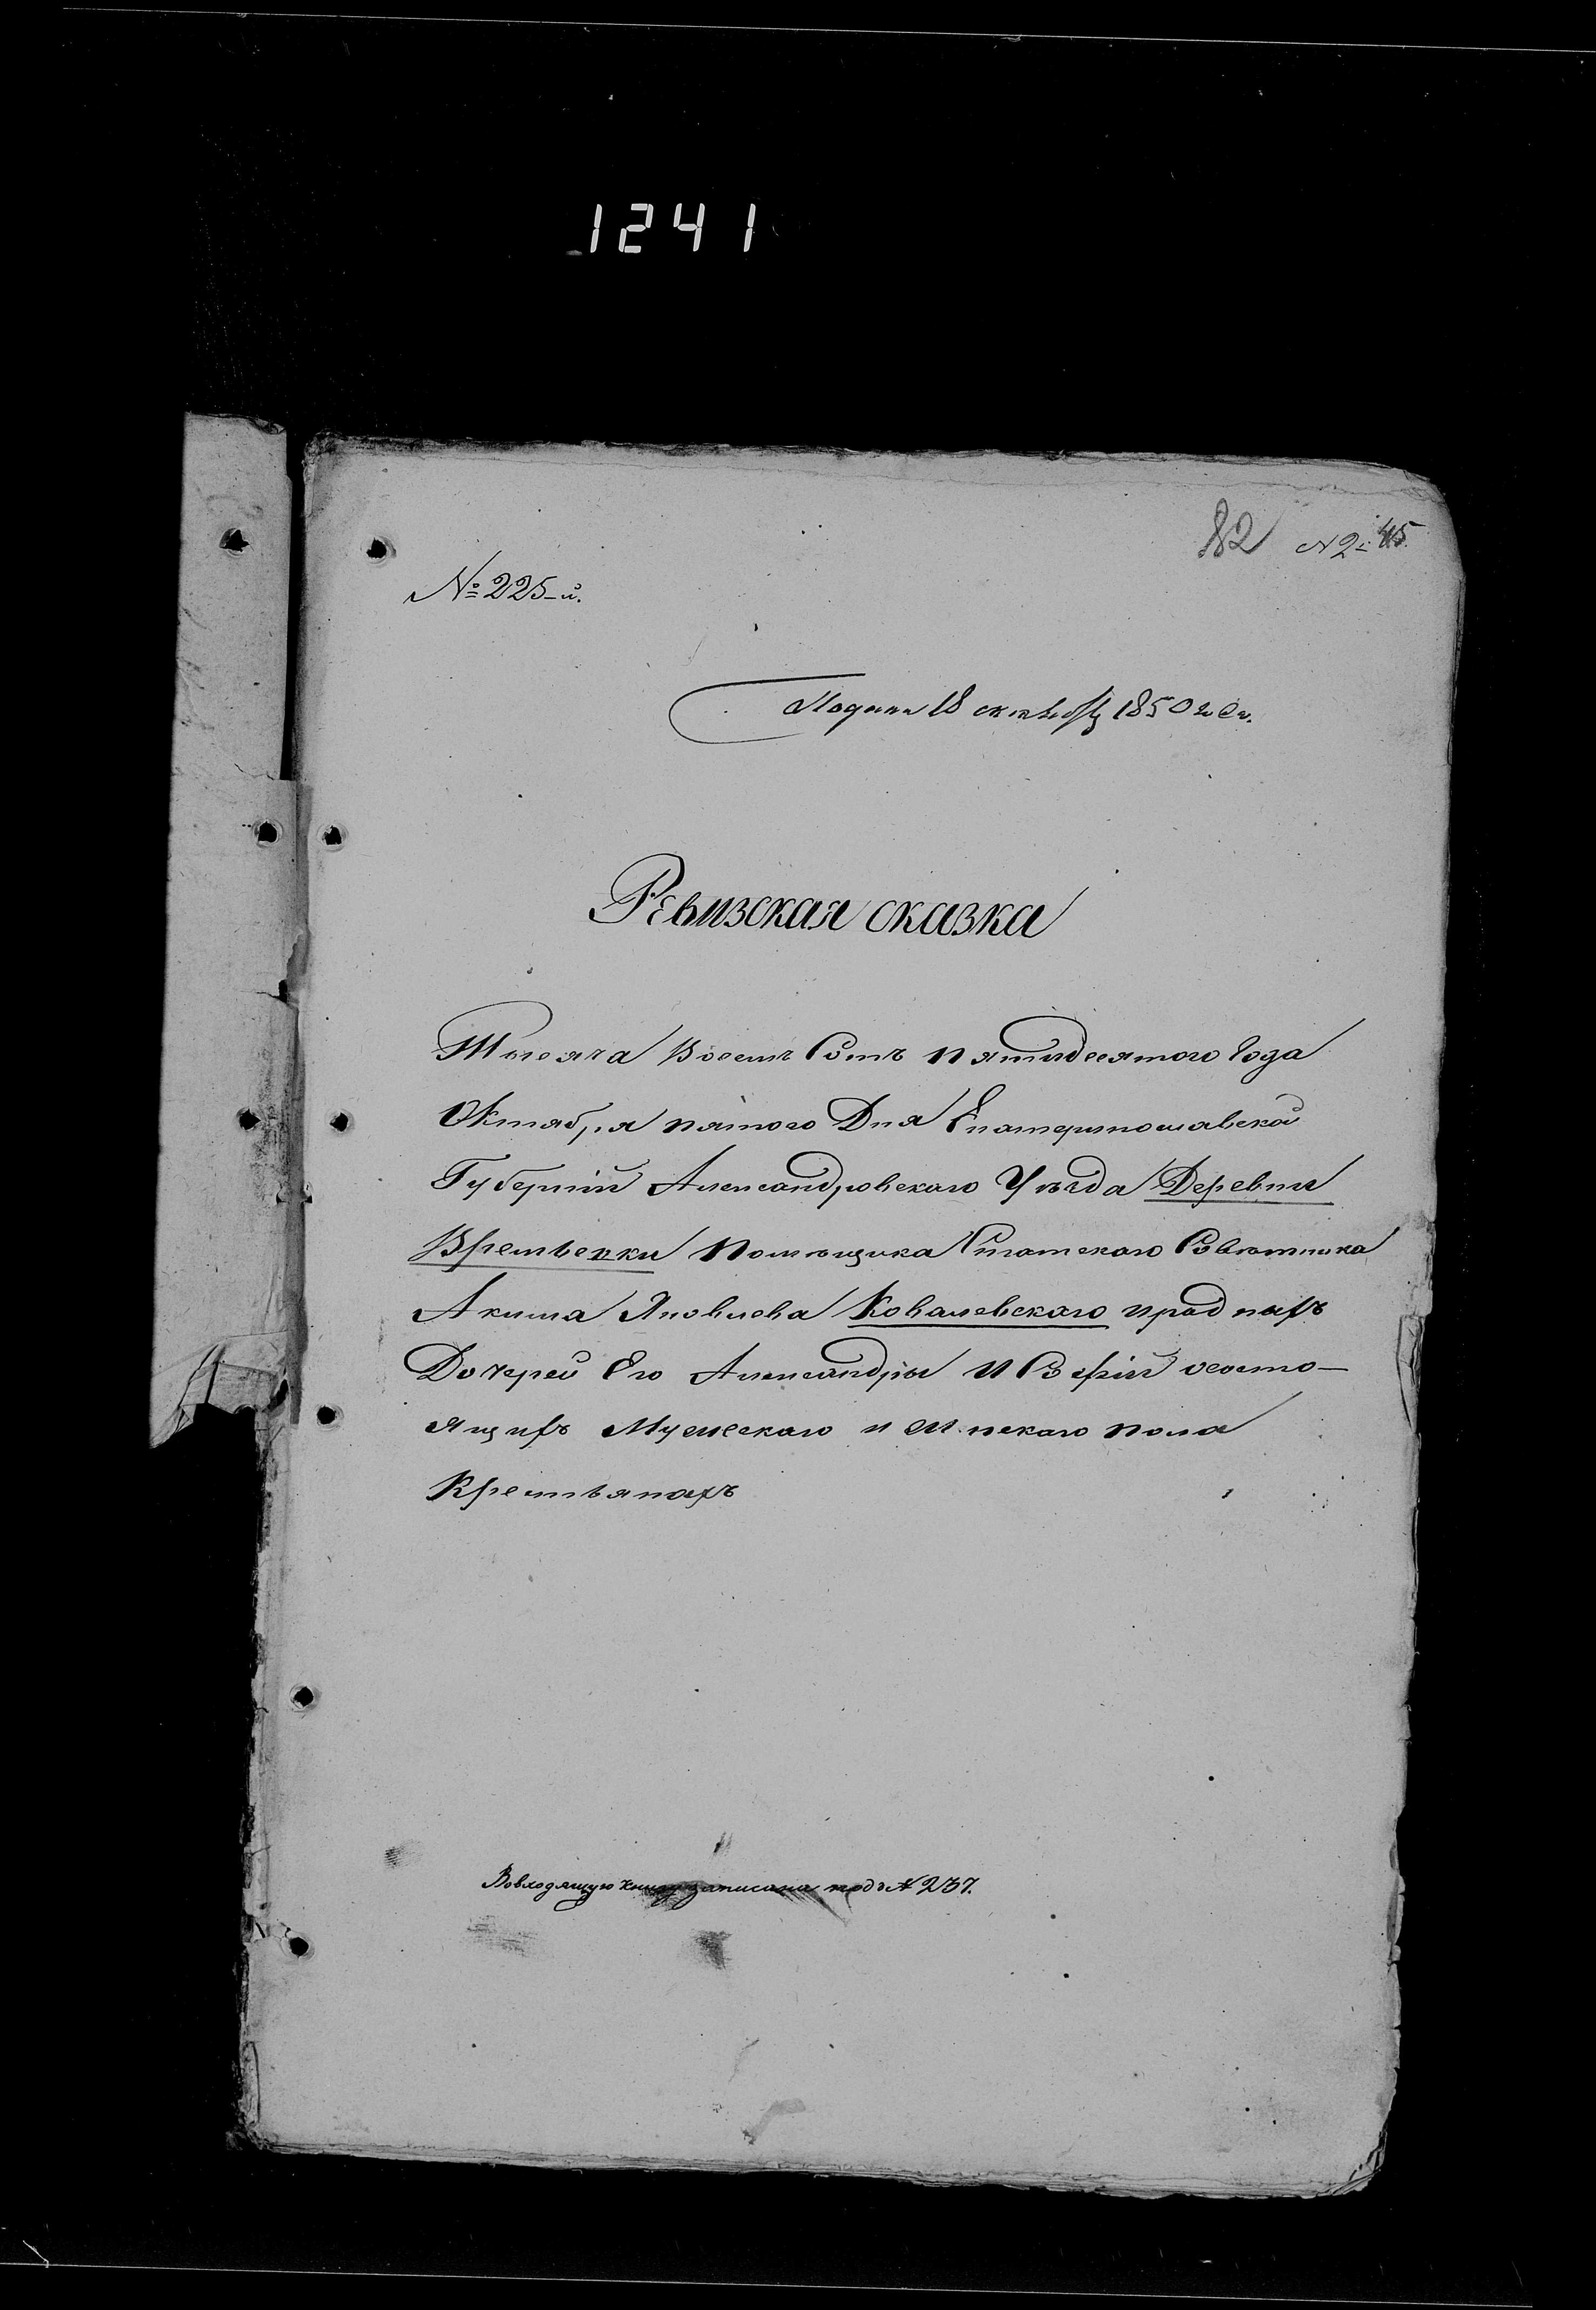 1241
82 N 2:45.
№ 225-й.
Подана 18 октября 1850 года.
Ревизская сказка
Тысяча Восемь Сотъ пятидесятого Года
Октября пятого Дня Екатеринославской
Губерніи Александровского Уѣзда Деревни
Времьевки Помѣщика Статского Совѣтника
Акима Яковлева Ковалевского и родныхъ
Дочерей Его Александры и Софіи о состо-
Ящихъ Мужеского и женского пола
Крестьянахъ
Во входящую книгу записана подъ N 237.